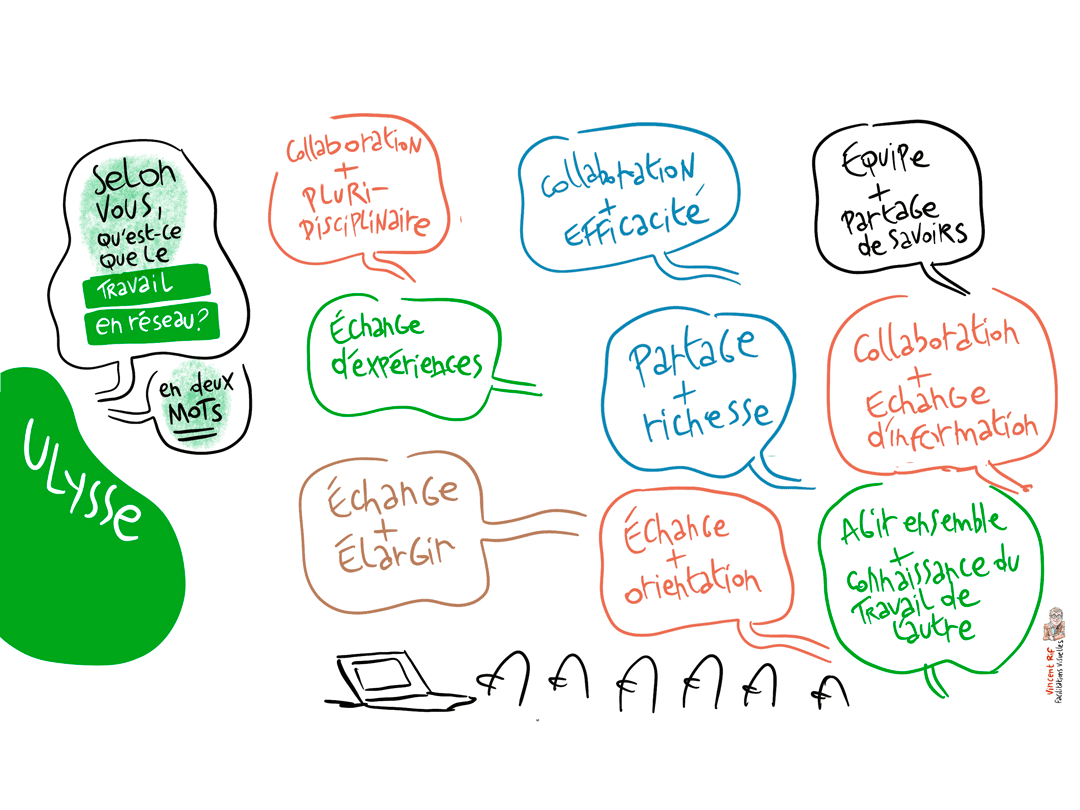 Selon
vous,
qu'est-ce
que le
travail
en réseau?
en deux
mots
ULYSSE
Collaboration
+
pluri-
disciplinaire
Collaboration
+
Efficacité
Équipe
+
Partage
de savoirs
Échange
d'expériences
Partage
+
richesse
Collaboration
+
Echange
d'information
Échange
+
Élargir
Échange
+
orientation
Agir ensemble
+
connaissance du
travail de
l'autre
Vincent Rif
Facilitations Visuelles